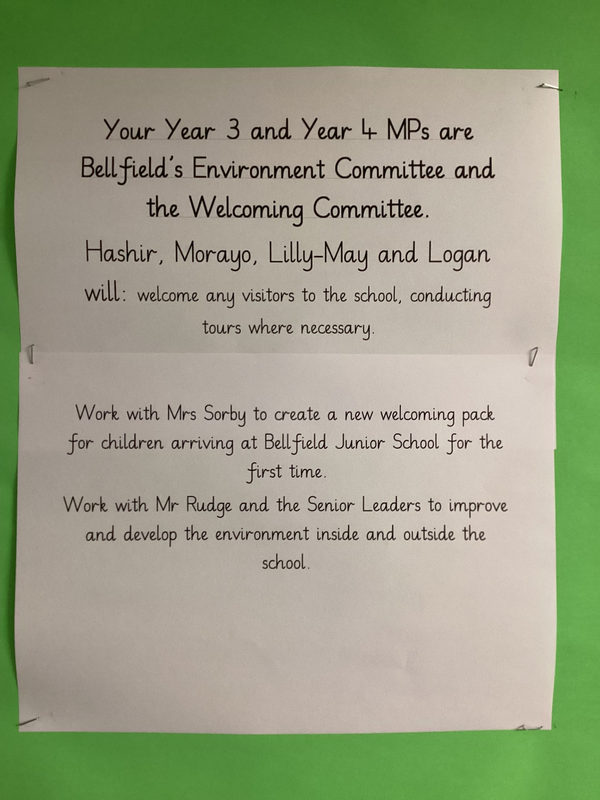 Your Year 3 and Year 4 MPs are
Bellfield's Environment Committee and
the Welcoming Committee.
Hashir, Morayo, Lilly-May and Logan
will: welcome any visitors to the school, conducting
tours where necessary.
Work with Mrs Sorby to create a new welcoming pack
for children arriving at Bellfield Junior School for the
first time.
Work with Mr Rudge and the Senior Leaders to improve
and develop the environment inside and outside the
school.